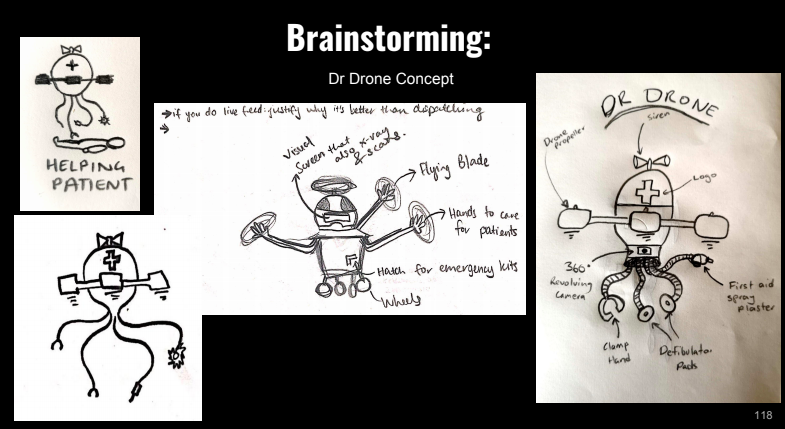 Brainstorming:
Dr Drone Concept
HELPING
PATIENT
→ if you do live feed: justify why it's better than dispatching
→
Visual
Screen that
also x-ray
& scans.
Flying Blade
Hands to care
for patients
Hatch for emergency kits
Wheels
DR DRONE
Siren
Drone
Propeller
Logo
360°
Revolving
Camera
First aid
spray
plaster
Clamp
Hand
Defibulator
Pads
118